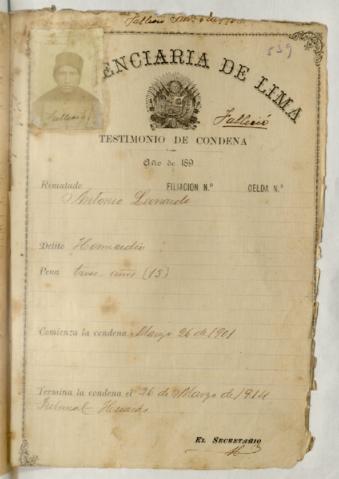 Falleció
539
ENCIARIA DE LIMA
Falleció
Falleció
TESTIMONIO DE CONDENA
Año de 189
Rematado FILIACIÓN N.º CELDA N.º
Antonio Leonardo
Delito Homicidio
Pena trece años (13)
Comienza la condena Marzo 26 de 1901
Termina la condena el 26 de Marzo de 1914
Tribunal
EL SECRETARIO